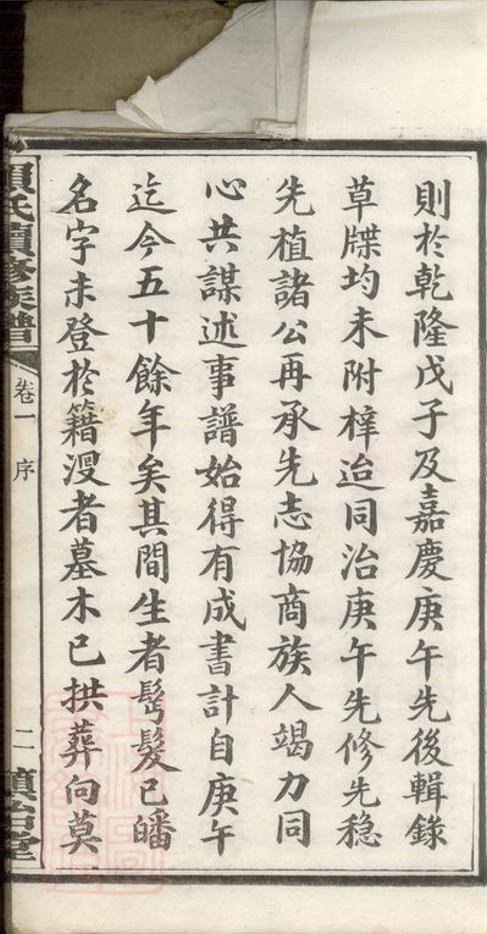 則於乾隆戊子及嘉慶庚午先後輯錄
草牒均未附梓迨同治庚午先修先穩
先植諸公再承先志協商族人竭力同
心共謀述事譜始得有成書計自庚午
迄今五十餘年矣其間生者髫髮已皤
名字未登於籍沒者墓木已拱葬向莫
氏續修族譜
卷一 序
二
慎治堂